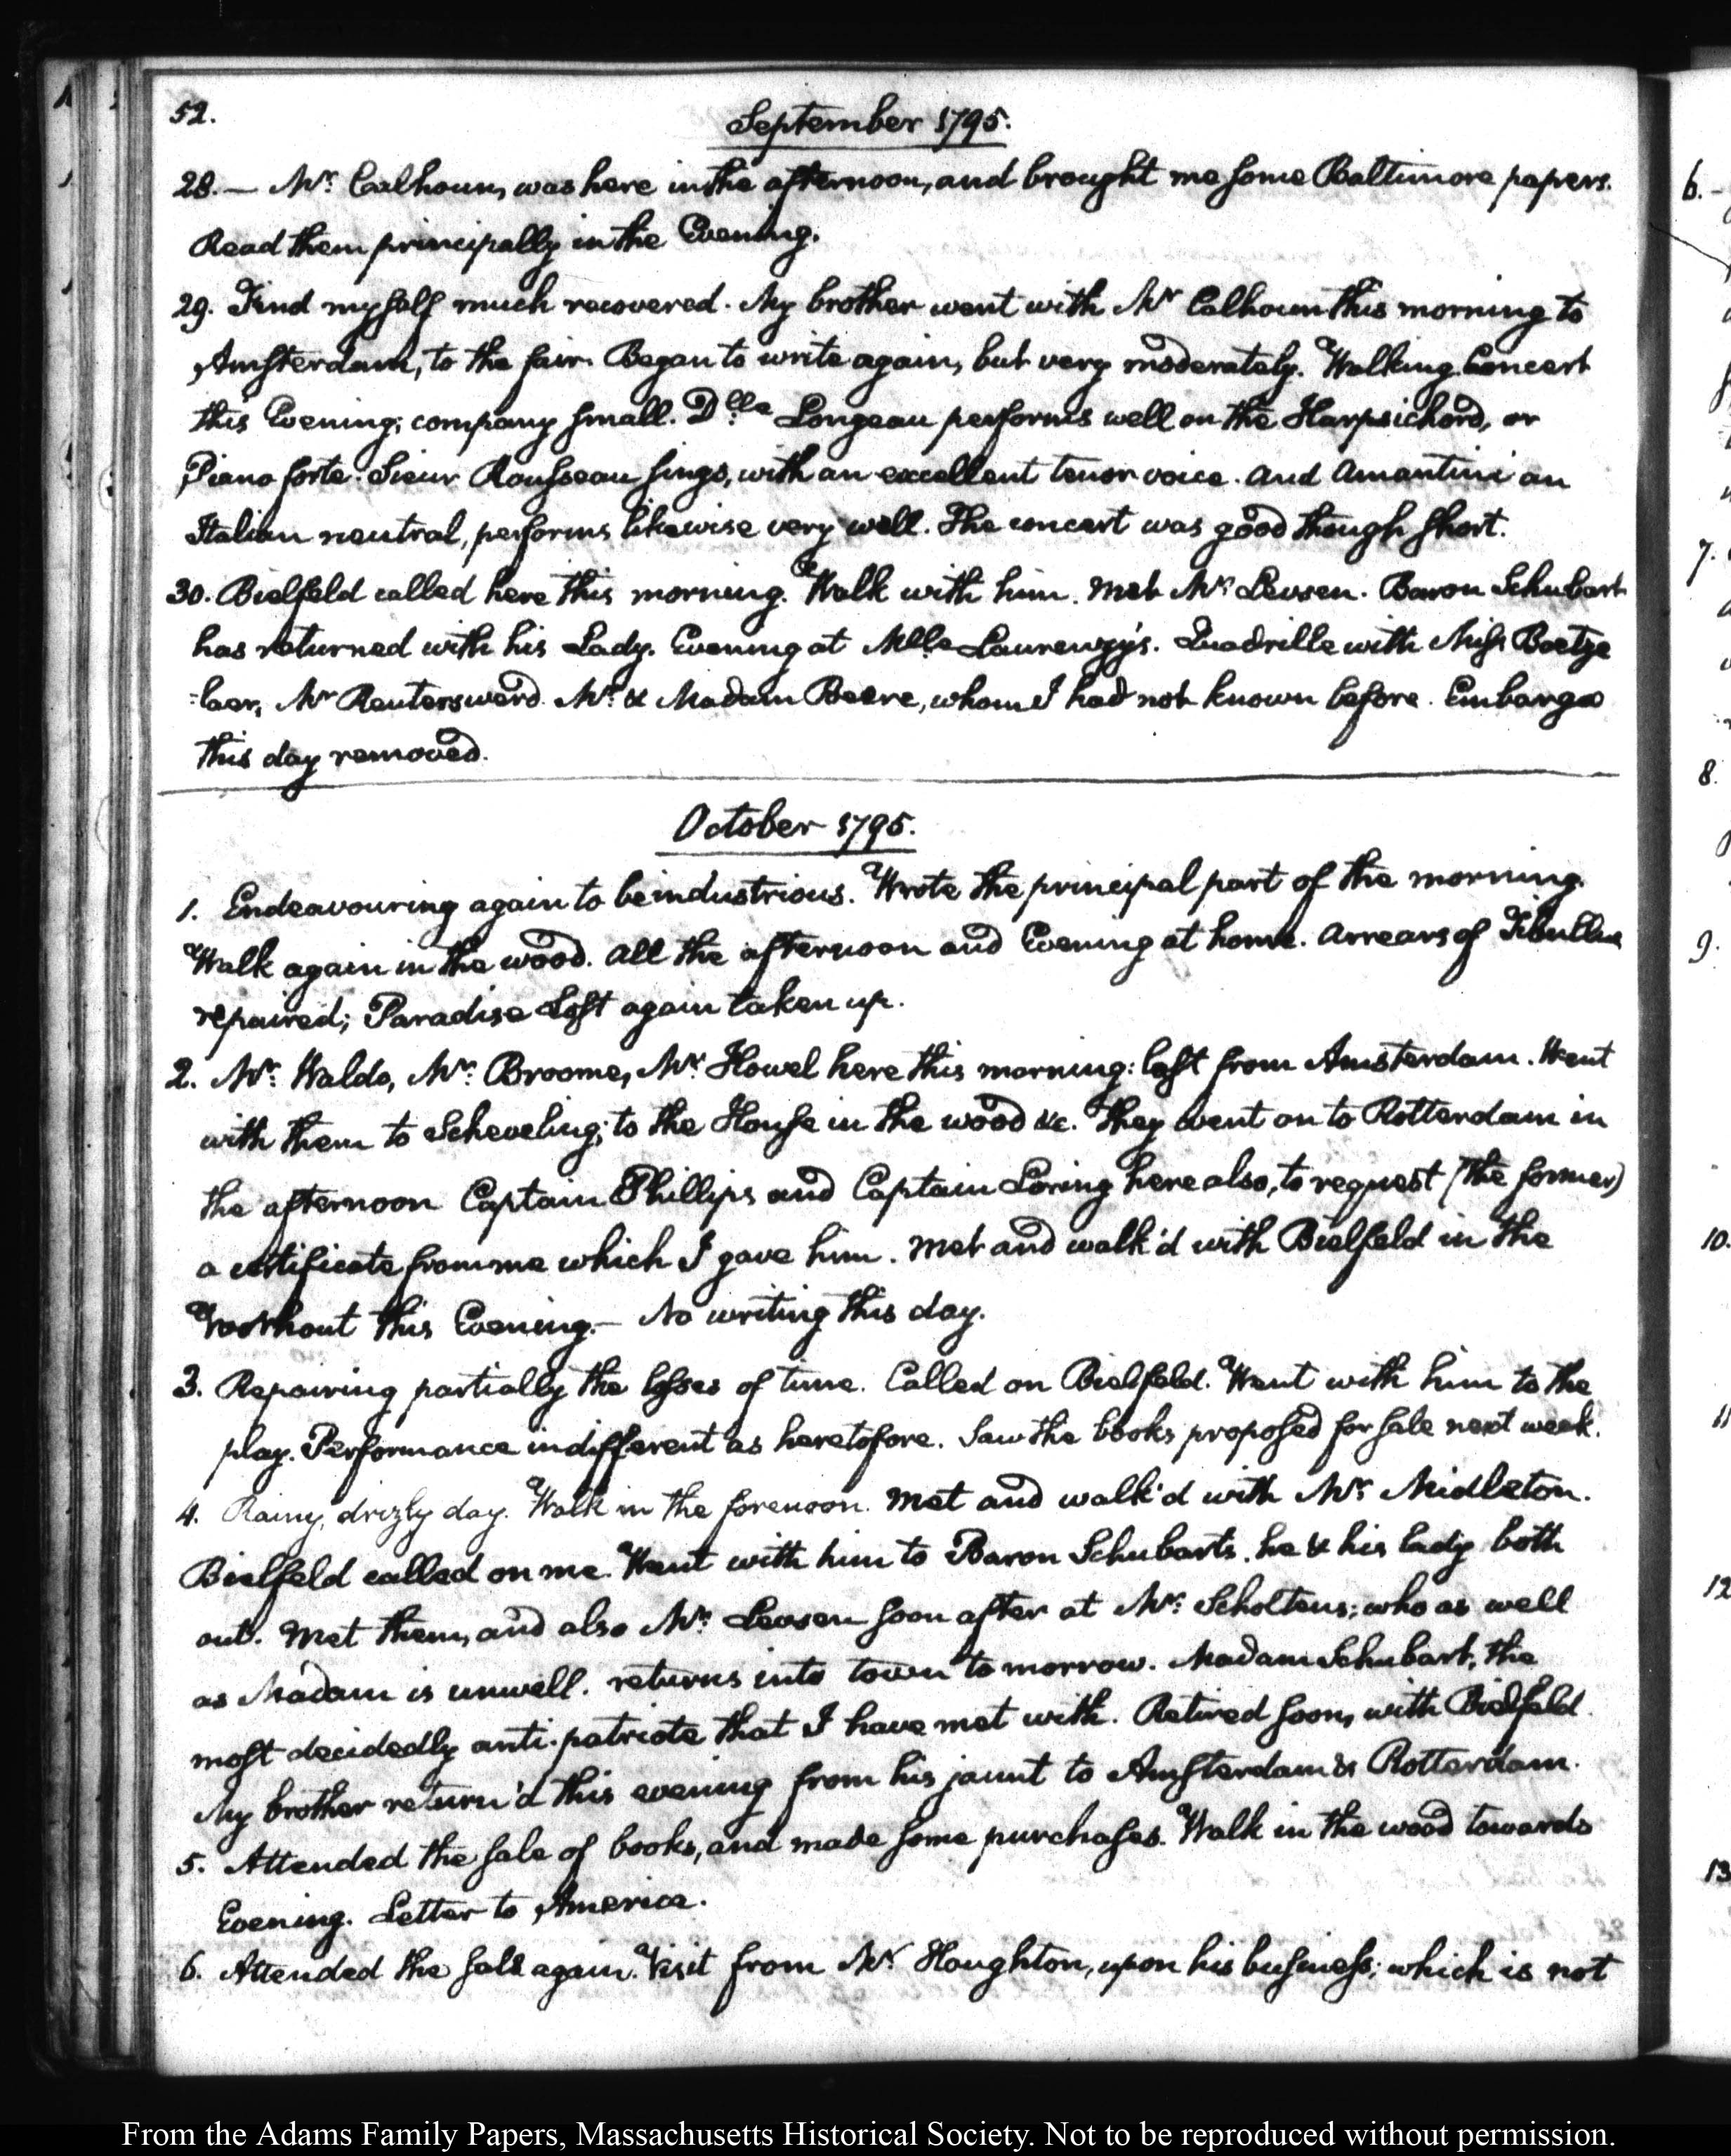 52.
September 1795.
28. — Mr. Calhoun, was here in the afternoon, and brought me some Baltimore papers.
Read them principally in the Evening.
29. Find myself much recovered. My brother went with Mr Calhoun this morning to
Amsterdam, to the fair. Began to write again, but very moderately. Walking. Concert
this Evening; company small. Dlle Longeau performs well on the Harpsichord, or
Piano forte. Sieur Rousseau sings, with an excellent tenor voice. And Amantini an
Italian neutral, performs likewise very well. The concert was good though short.
30. Bielfeld called here this morning. Walk with him. Met Mr. Levsen. Baron Schubart
has returned with his Lady. Evening at Mlle Laurenzy's. Quadrille with Miss Boetze
-laer, Mr Reutersward. Mr. & Madam Beere, whom I had not known before. Embargo
this day removed.
October 1795.
1. Endeavouring again to be industrious. Wrote the principal part of the morning.
Walk again in the wood. All the afternoon and Evening at home. Arrears of Tibullus
repaired; Paradise Lost again taken up.
2. Mr. Waldo, Mr. Broome, Mr. Howel here this morning: last from Amsterdam. Went
with them to Scheveling; to the House in the wood &c. They went on to Rotterdam in
the afternoon Captain Phillips and Captain Loring here also, to request (the former)
a certificate from me which I gave him. Met and walk'd with Bielfeld in the
Voorhout this Evening.— No writing this day.
3. Repairing partially the losses of time. Called on Bielfeld. Went with him to the
play. Performance indifferent as heretofore. Saw the books proposed for sale next week.
4. Rainy, drizly day. Walk in the forenoon. Met and walk'd with Mr. Midleton.
Bielfeld called on me. Went with him to Baron Schubarts. he & his lady both
out. Met them, and also Mr. Levsen soon after at Mr. Scholtens; who as well
as Madam is unwell. returns into town to morrow. Madam Schubart, the
most decidedly anti-patriote that I have met with. Retired soon, with Bielfeld.
My brother return'd this evening from his jaunt to Amsterdam & Rotterdam.
5. Attended the sale of books, and made some purchases. Walk in the wood towards
Evening. Letter to America.
6. Attended the sale again. Visit from Mr. Houghton, upon his business; which is not
6. –
7.
8.
9.
10.
11
12
13
From the Adams Family Papers, Massachusetts Historical Society. Not to be reproduced without permission.